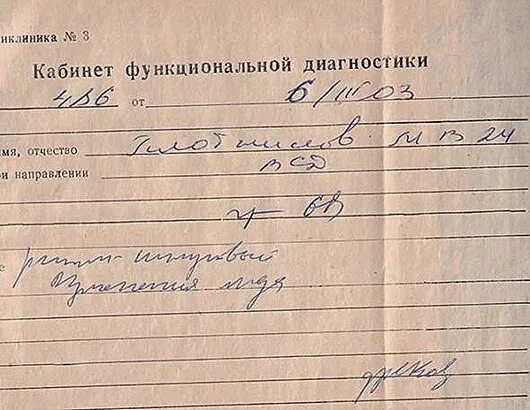 иклиника № 3
Кабинет функциональной диагностики
486 от 6/III 03
мя, отчество Плотников М В 24
ри направлении ВСД
ритм синусовый
Изменения